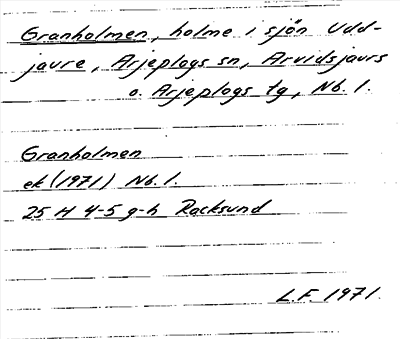 Granholmen, holme i sjön Udd-
jaure, Arjeplogs sn, Arvidsjaurs
o. Arjeplogs tg, Nb. l.
Granholmen
ek (1971) Nb. l.
25 H 4-5 g-h Racksund
L.F. 1971.